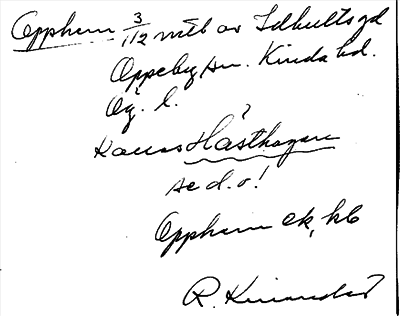 Opphem 3/112 mtl av Idhultsgd
Oppeby sn. Kinda hd.
Ög. l.
?
kallas Hästhagen
se d. o!
Opphem ek, kb
R.